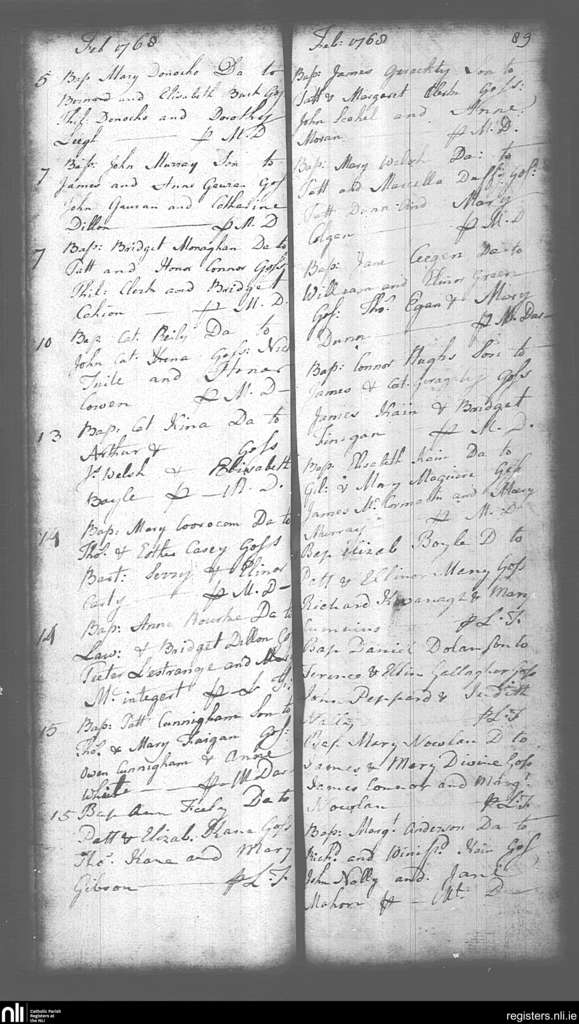 Feb 1768
5 Bap: Mary Donocho Da to
Bernard and Elisabeth Burk Gos
Thos Donocho and Dorothy
Leigh — P M. D
7 Bap: John Murray Son to
James and Anne Gauran Gos
John Gauran and Catherine
Dillon — P M. D
7 Bap: Bridget Monaghan Da to
Patt and Honor Connor Goss
Phil: Clerk and Bridget
Cahion — P M. D.
10 Bap Cat. Reily Da to
John Cat: Goss: Nic
Tuite and Honor
Cowen P M. D —
13 Bap: Cat Kina Da to
Arthur & Goss
Js Welsh & Elisabeth
Boyle — P — M. D.
14 Bap: Mary Da to
Thos: & Esther Casey Goss
Bart: & Elinor
P M. D —
14 Bap: Anne Rourke Da to
Law: & Bridget Dillon
Peter Lestrange and
P
15 Bap: Patt Cunnigham Son to
Thos & Mary Gos:
Owen Cunnigham & Anne
White — P M Das
15 Bap Ann Feely Da to
Patt & Elizab. Kana Goss
Thos. Kane and Mary
Gibson — P L. F
Feb: 1768 89
Bap: James Geraghty Son to
Patt & Margaret Clerk Goss:
John and Anne
Moran P M. D.
Bap: Mary Welsh Da: to
Patt and Marcella Gos:
Patt Dunn and Mary
Colgan — P M. D
Bap: Jane Da to
William and Elinor Green
Gos: Thos Egan & Mary
Dunn — P M. Das —
Bap: Connor Hughs Son to
James & Cat. Goss
James Kain & Bridget
Finegan P M. D.
Bap. Elisabeth Kain Da to
Gil: & Mary Maguire Goss
James McCormack and Mary
Murray P M. D
Bap Elizab Boyle D to
Patt & Ellinor Many Goss
Richard Kavanagh & Mary
P L. F.
Bap Daniel Dolan Son to
Terence & Gallagher Goss
John Peppard &
P L. F
Bap. Mary Nowlan D to
James & Mary Divine Goss
James Connor and Margt
Nowlan P L. F
Bap: Margt Anderson Da to
Richd and Winifrd Kain Gos
John Nally and Jane
Mahon P — M. D —
nli
Catholic Parish
Registers at
the NLI
registers.nli.ie